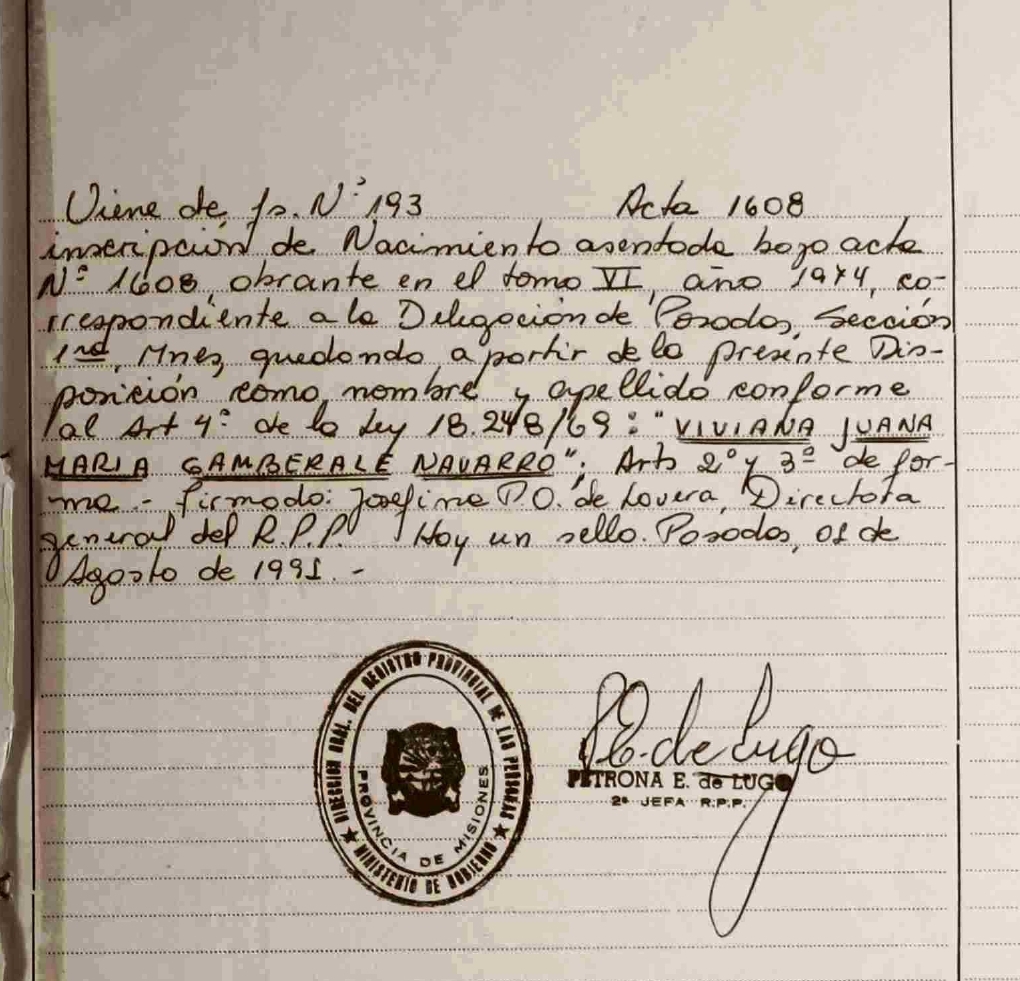 Viene de fs. Nº 193 Acta 1608
inscripción de Nacimiento asentada bajo acta
Nº 1608, obrante en el tomo VI, año 1974, co-
rrespondiente a la Delegación de Posadas, Sección
1ra, Mnes, quedando a partir de la presente Dis-
posición como nombre y apellido conforme
al Art 4º de la Ley 18.248/69: "VIVIANA JUANA
MARIA GAMBERALE NAVARRO"; Arts 2º y 3º de for-
ma.- Firmado: Josefina P.O. de Lovera, Directora
general del R.P.P. Hay un sello. Posadas, 01 de
Agosto de 1991.-
DIRECCION GRAL. DEL REGISTRO PROVINCIAL DE LAS PERSONAS
PROVINCIA DE MISIONES
★ MINISTERIO DE GOBIERNO ★
P.E. de Lugo
PETRONA E. de LUGO
2ª JEFA R.P.P.